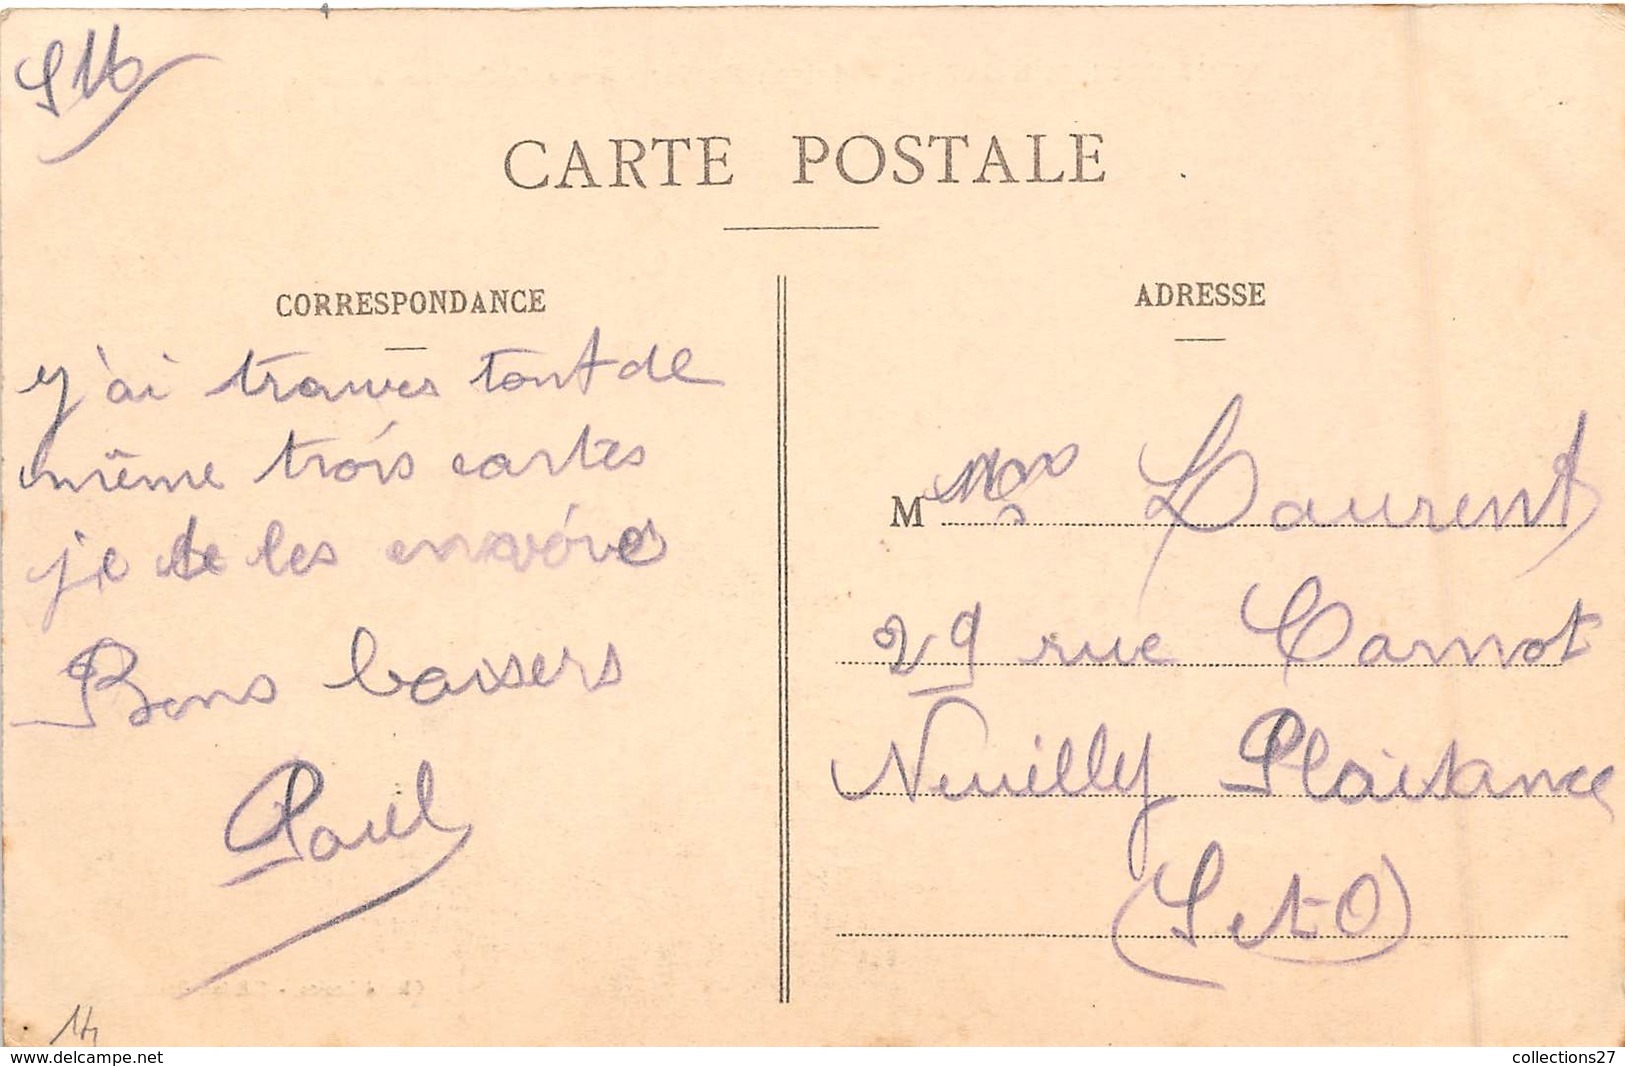 S M
CARTE POSTALE
CORRESPONDANCE
j'ai trouves tout de
même trois cartes
je te les envóies
Bons baisers
Paul
14
ADRESSE
M Mme Laurent
29 rue Carnot
Neuilly Plaisance
(S et O)
www.delcampe.net
collections27